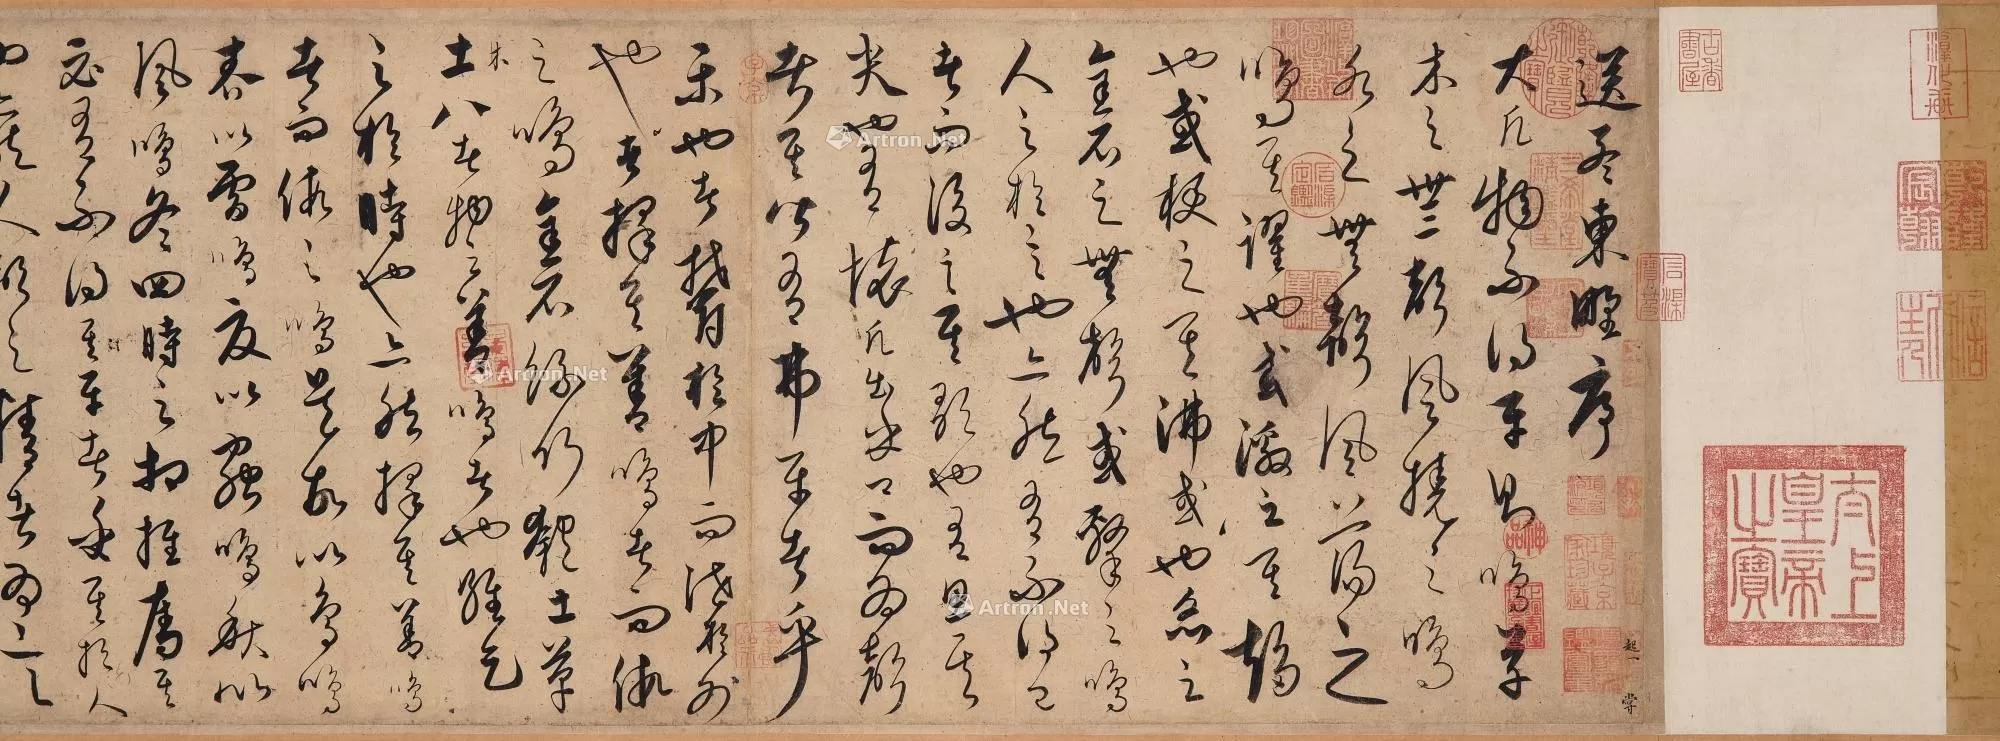 古香書屋
淳化軒
乾隆宸翰
信天主人
太上皇帝之寶
送孟東野序
大凡物不得平則鳴草
木之無聲風撓之鳴
水之無聲風蕩之
鳴其躍也或激之其趨
也或梗之其沸或也炙之
金石之無聲或擊之鳴
人之於言也亦然有不得已
者而後言其歌也有思其
哭也有懷凡出乎口而為聲
者其皆有弗平者乎
樂也者鬱於中而泄於外
也者擇其善鳴者而假
之鳴金石絲竹匏土革
木
土八者物之善鳴者也維天
之於時也亦然擇其善鳴
者而假之鳴是故以鳥鳴
春以雷鳴夏以蟲鳴秋以
風鳴冬四時之相推奪其
必有不得其平者乎其於人
也亦然人聲之精者為言
神品
Artron.Net
Artron.Net
Artron.Net